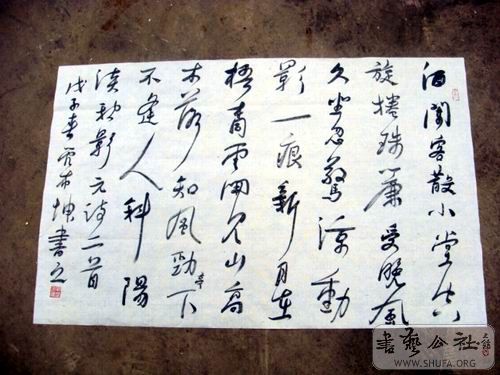 酒闌客散小堂空
旋捲珠簾受晚風
久坐忽驚涼動
影一痕新月在
梧青雲開見山高
木落知風勁亭下
不逢人斜陽
淡秋影元詩二首
戊子春坤書之
書藝公社
WWW.SHUFA.ORG